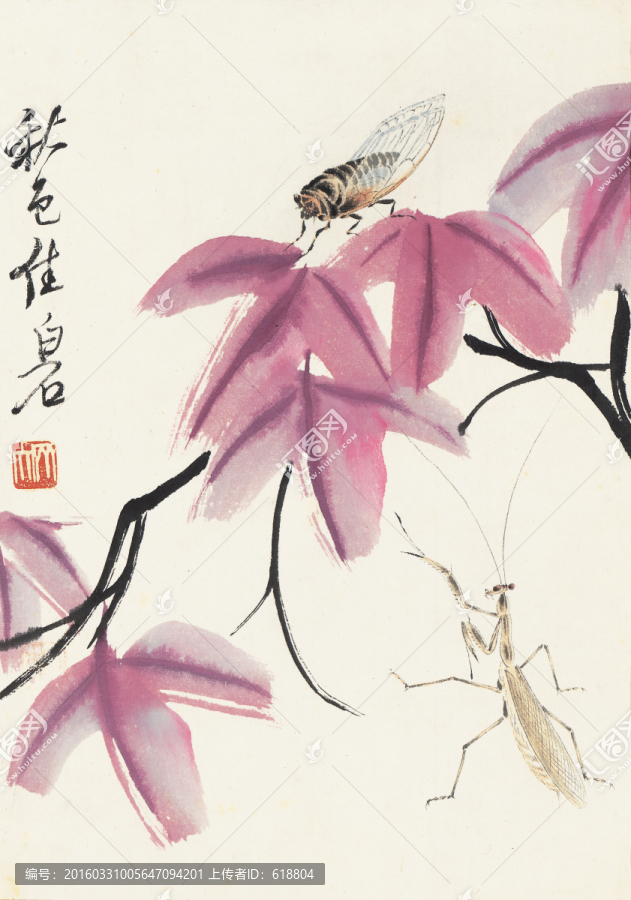 秋色佳
白石
汇图网
www.huitu.com
编号：20160331005647094201 上传者ID：618804